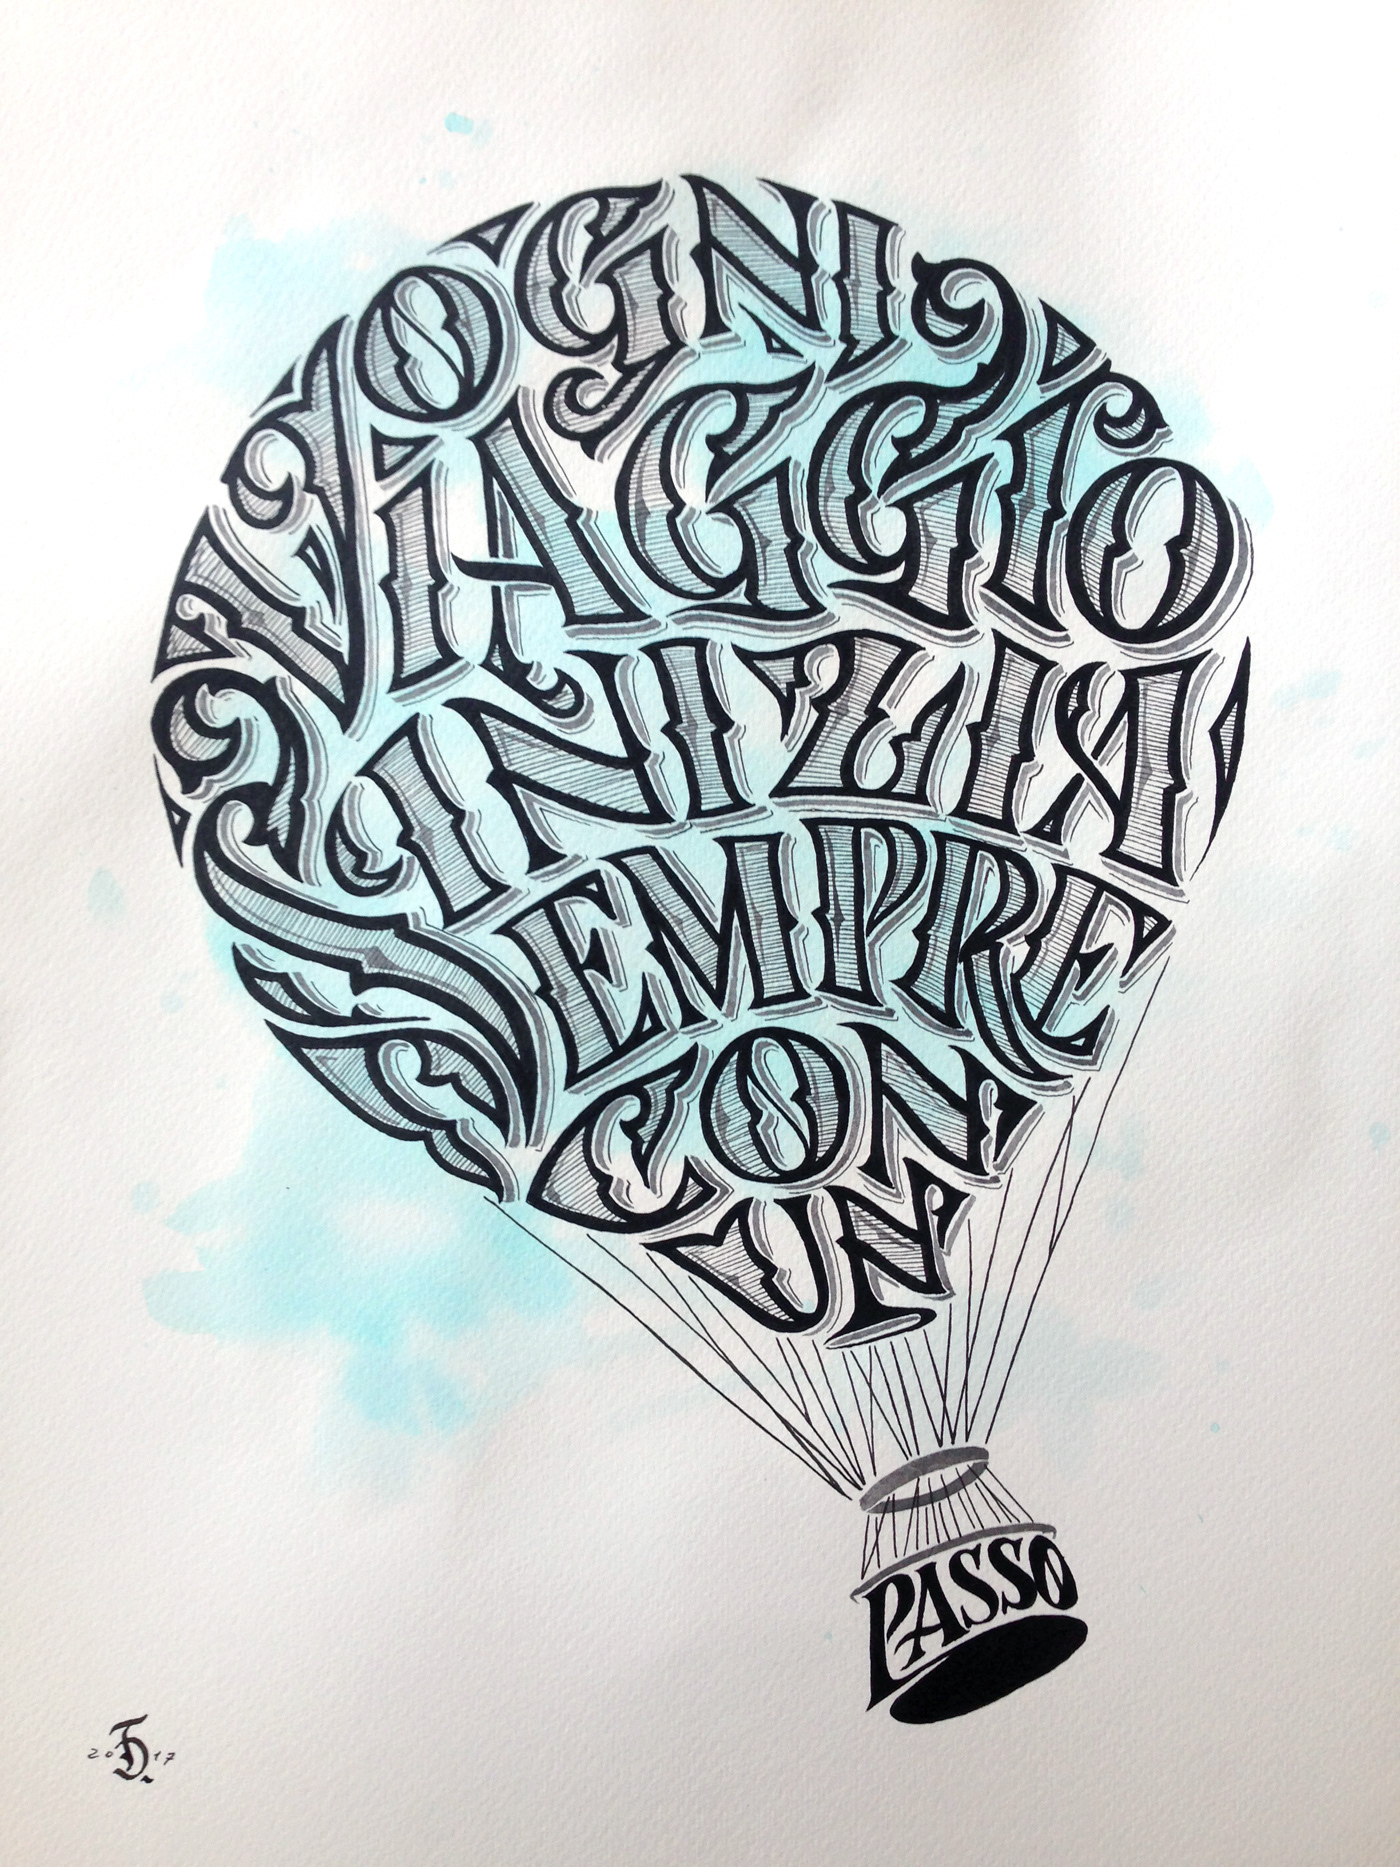 OGNI
VIAGGIO
INIZIA
SEMPRE
CON
UN
PASSO
2017